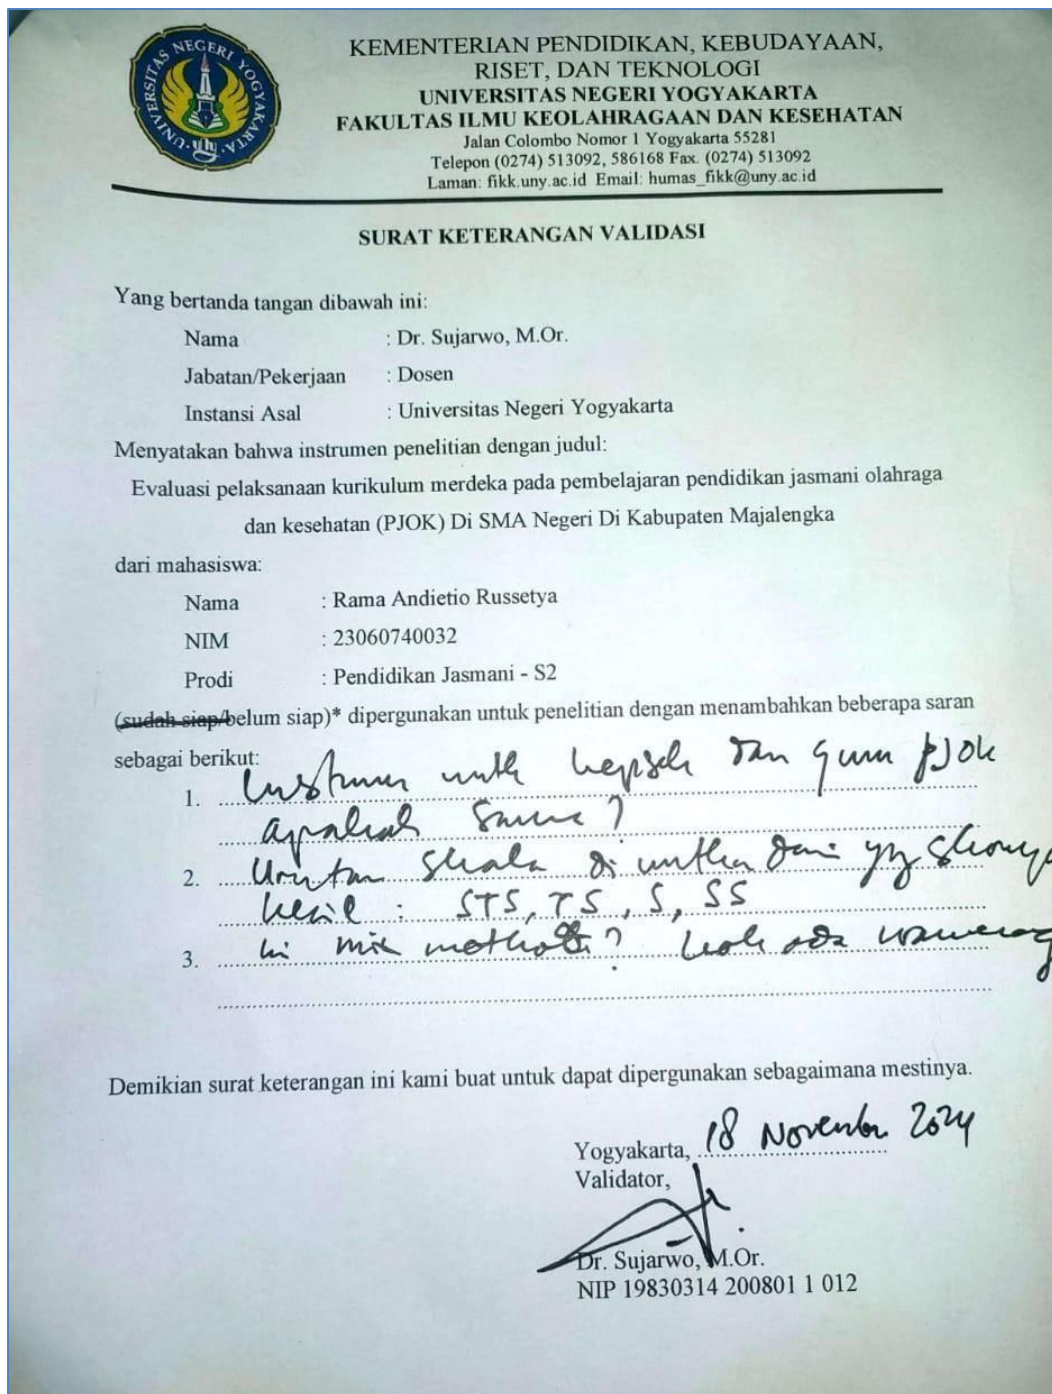 UNIVERSITAS NEGERI YOGYAKARTA
KEMENTERIAN PENDIDIKAN, KEBUDAYAAN,
RISET, DAN TEKNOLOGI
UNIVERSITAS NEGERI YOGYAKARTA
FAKULTAS ILMU KEOLAHRAGAAN DAN KESEHATAN
Jalan Colombo Nomor 1 Yogyakarta 55281
Telepon (0274) 513092, 586168 Fax. (0274) 513092
Laman: fikk.uny.ac.id Email: humas_fikk@uny.ac.id
SURAT KETERANGAN VALIDASI
Yang bertanda tangan dibawah ini:
Nama : Dr. Sujarwo, M.Or.
Jabatan/Pekerjaan : Dosen
Instansi Asal : Universitas Negeri Yogyakarta
Menyatakan bahwa instrumen penelitian dengan judul:
Evaluasi pelaksanaan kurikulum merdeka pada pembelajaran pendidikan jasmani olahraga
dan kesehatan (PJOK) Di SMA Negeri Di Kabupaten Majalengka
dari mahasiswa:
Nama : Rama Andietio Russetya
NIM : 23060740032
Prodi : Pendidikan Jasmani - S2
(sudah siap/belum siap)* dipergunakan untuk penelitian dengan menambahkan beberapa saran
sebagai berikut:
1. Instrumen untk kepsek dan guru PJOK
apakah sama?
2. Urutan skala di urutkan dari yg skornya
kecil : STS, TS, S, SS
3. Ini mix method? kok ada
Demikian surat keterangan ini kami buat untuk dapat dipergunakan sebagaimana mestinya.
Yogyakarta, 18 November 2024
Validator,
Dr. Sujarwo, M.Or.
NIP 19830314 200801 1 012